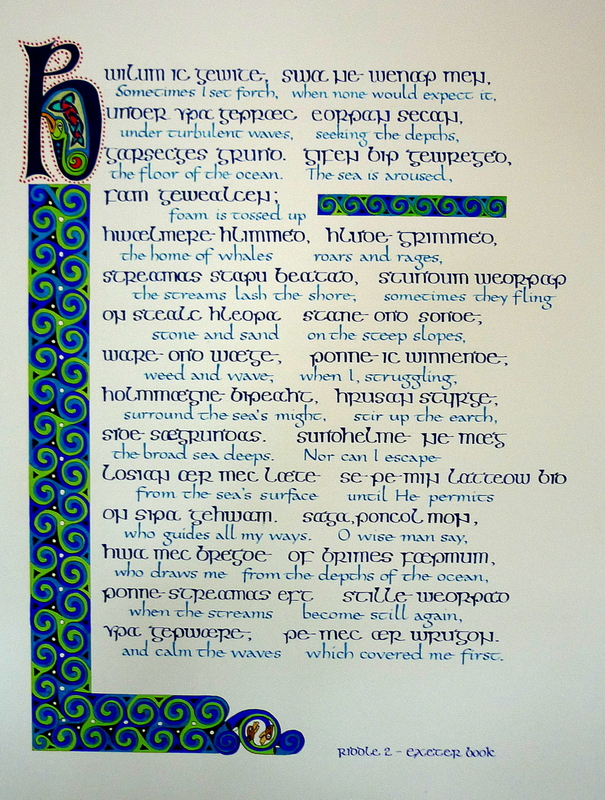 Hwilum ic gewite, swa ne wenaþ men,
Sometimes I set forth, when none would expect it,
under yþa geþræc eorþan secan,
under turbulent waves, seeking the depths,
garsecges grund. Gifen biþ gewreged,
the floor of the ocean. The sea is aroused,
fam gewealcen;
foam is tossed up
hwælmere hlimmeð, hlude grimmeð,
the home of whales roars and rages,
streamas staþu beatað, stundum weorpaþ
the streams lash the shore, sometimes they fling
on stealc hleoþa stane ond sonde,
stone and sand on the steep slopes,
ware ond wæge, þonne ic winnende,
weed and wave, when I, struggling,
holmmægne biþeaht, hrusan styrge,
surround the sea's might, stir up the earth,
side sægrundas. sundhelme ne mæg
the broad sea deeps. Nor can I escape
losian ær mec læte se þe min latteow bið
from the sea's surface until He permits
on siþa gehwam. saga, þoncol mon,
who guides all my ways. O wise man say,
hwa mec bregde of brimes fæþmum,
who draws me from the depths of the ocean,
þonne streamas eft stille weorþað
when the streams become still again,
yþa geþwære, þe mec ær wrugon.
and calm the waves which covered me first.
Riddle 2 - Exeter Book